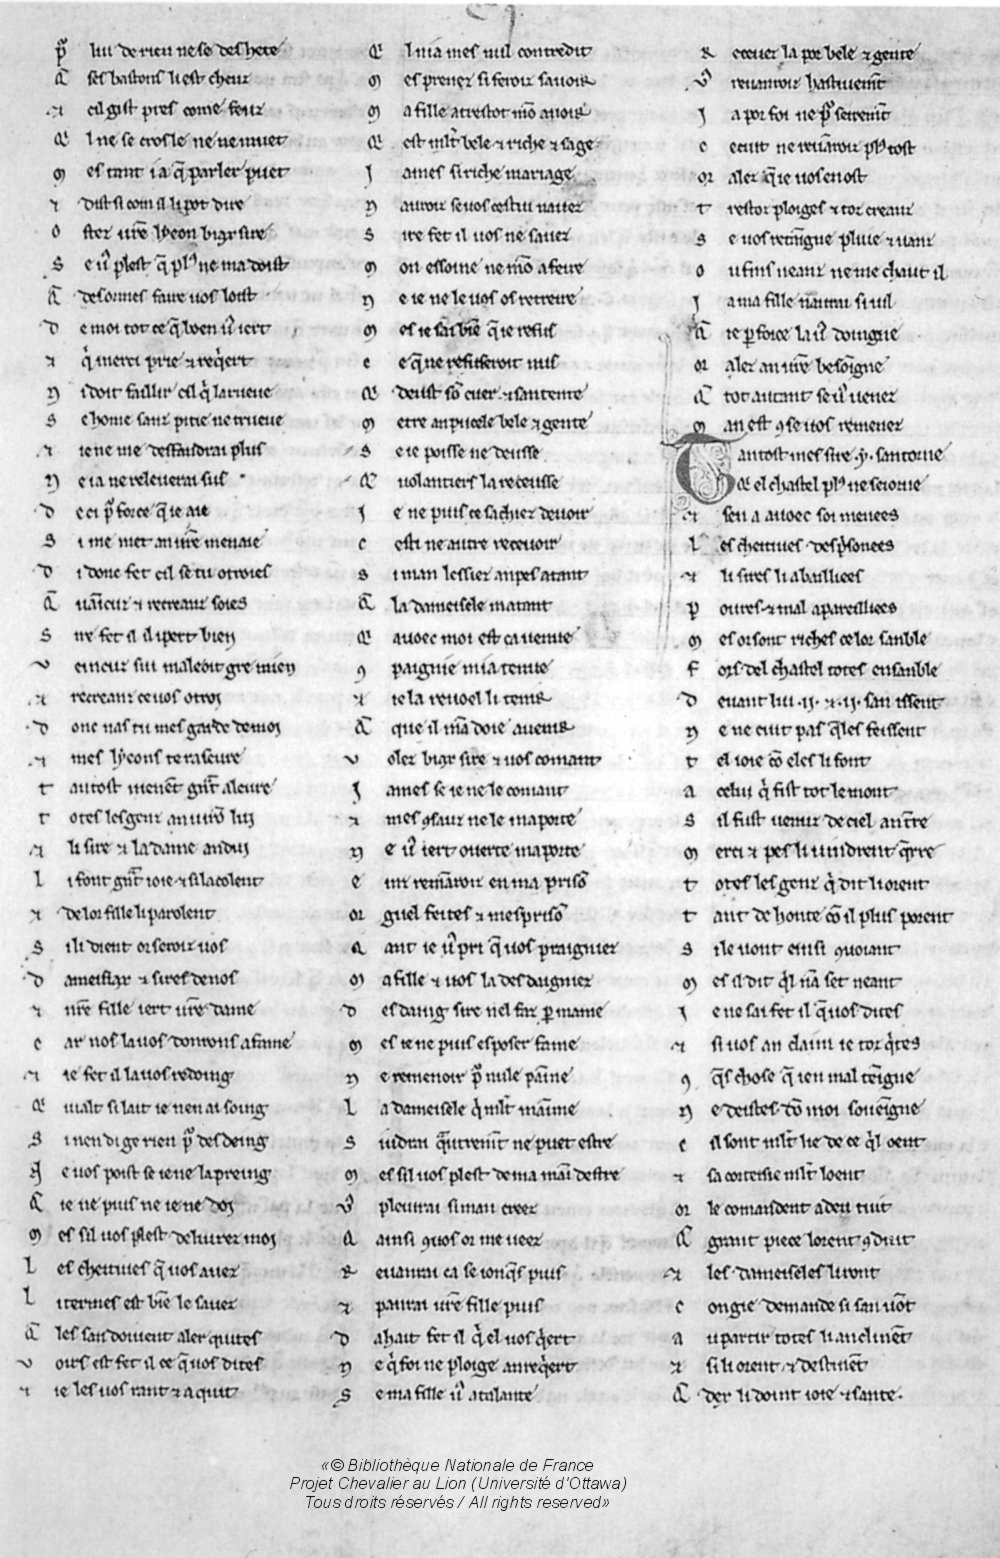 P̃ lui de rien ne se deshete
A ses bastons li est cheuz
⁊ cil gist pres come feuz
Q l ne se crosle ne ne muet
M es tant i a q̃ parler puet
⁊ dist si com il li pot dire
O stez v̾re lyeon biax sire
S e v̾ plest q̃ pl̾ ne madoist
Q desormes faire uos loist
D e moi tot ce q̃ boen v̾ iert
⁊ q̾ merci prie ⁊ req̾ert
N i doit faillir cil q̾ la rueue
S e home sanz pitie ne trueue
⁊ ie ne me desfandrai plus
N e ia ne releuerai sus
D e ci p̃ force q̃ ie aie
S i me met an v̾re menaie
D i donc fet cil se tu otroies
Q uaincuz ⁊ recreanz soies
S ire fet il il i pert bien
V eincuz sui maleoit gre mien
⁊ recreanz ce uos otroi
D onc nas tu mes garde de moi
⁊ mes lyeons te raseure
T antost uienēt grāt aleure
T otes les genz anuirō lui
⁊ li sire ⁊ la dame andui
L i font grāt ioie ⁊ si lacolent
⁊ de lor fille li parolent
S i li dient or seroiz uos
D ameisiax ⁊ sires de nos
⁊ n̾re fille iert v̾re dame
C ar nos la uos donrons a fame
⁊ ie fet il la uos redoing
Q ui lait si lait ie nen ai soing
S i nen di ge rien p̃ desdeing
N e uos poist se ie ne la preing
Q ie ne puis ne ie ne doi
M es sil uos plest deliurez moi
L es cheitiues q̃ uos auez
L i termes est biē le sauez
Q les san doiuent aler quites
V oirs est fet il ce q̃ uos dites
⁊ ie les uos rant ⁊ aquit
Q l ni a mes nul contredit
M es prenez si feroiz sauoir
M a fille a trestot mō auoir
Q est ml̾t bele ⁊ riche ⁊ sage
I ames si riche mariage
N auroiz se uos cestui nauez
S ire fet il uos ne sauez
M on essoine ne mō afeire
N e ie ne le uos os retreire
M es ie sai biē q̃ ie refus
C e q̃ ne refuseroit nus
Q deust sō cuer ⁊ santente
M etre an pucele bele ⁊ gente
S e ie poisse ne deusse
Q uolantiers la receusse
I e ne puis ce sachiez de uoir
C esti ne autre receuoir
S i man lessiez an pes atant
Q la dameisele matant
Q auoec moi est ca uenue
9 paignie mia tenue
⁊ ie la reuoel li tenir
Q que il mā doie auenir
V olez biax sire ⁊ uos comant
I ames se ie ne le comant
⁊ mes 9sauz ne le maporte
N e v̾ iert ouerte ma porte
E inz remāroiz en ma prisō
OR guel feites ⁊ mesprisō
Q ant ie v̾ pri q̃ uos praigniez
M a fille ⁊ uos la desdaigniez
D esdaig sire nel faz p̱ mame
M es ie ne puis esposer fame
N e remenoir p̃ nule painne
L a dameisele q̾ ml̾t māinne
S iudrai q̾utremēt ne puet estre
M es sil uos plest de ma main destre
V̾ pleuirai si man creez
Q ainsi 9 uos or me ueez
R euanrai ca se ionq̃s puis
⁊ panrai v̾re fille puis
D ahait fet il q̾ el uos q̾ert
N e q̾ foi ne ploige an req̾ert
S e ma fille v̾ atalante
R eceuez la por bele ⁊ gente
V̾ reuanroiz hastiuemēt
I a por foi ne p̃ seiremēt
C e cuit ne reuāroiz pl̾ tost
OR alez q̃ ie uos en ost
T restoz ploiges ⁊ toz creanz
S e uos retaingne pluie ⁊ uanz
O u fins neanz ne me chaut il
I a ma fille naurai si uil
Q ie p̱ force la v̾ doingne
OR alez an v̾re besoingne
Q tot autant se v̾ uenez
M an est 9 se uos remenez
T antost mes sire .y. santorne
Q el chastel pl̾ ne seiorne
⁊ sen a auoec soi menees
L es cheitiues desp̾sonees
⁊ li sires li a bailliees
P oures ⁊ mal apareilliees
M es or sont riches ce lor sanble
F ors del chastel totes ensanble
D euant lui .ij. ⁊ .ij. san issent
N e ne cuit pas q̃les feissent
T el ioie cō eles li font
A celui q̾ fist tot le mont
S il fust uenuz de ciel an t̾re
M erci ⁊ pes li uindrent q̃rre
T otes les genz q̾ dit li orent
T ant de honte cō il plus porent
S i le uont einsi 9uoiant
M es il dit q̾l nā set neant
I e ne sai fet il q̃ uos dites
⁊ si uos an claim ie toz q̾tes
9 q̃s chose q̃ ien mal teingne
N e deistes dō moi soueingne
C il sont ml̾t lie de ce q̾l oent
⁊ sa corteisie ml̾t loent
OR le comandent a deu tuit
Q grant piece lorent 9duit
⁊ les dameiseles li ront
C ongie demande si san uōt
A u partir totes li anclinēt
⁊ si li orent ⁊ destinēt
Q dex li doint ioie ⁊ sante.
«© Bibliothèque Nationale de France
Projet Chevalier au Lion (Université d'Ottawa)
Tous droits réservés / All rights reserved»